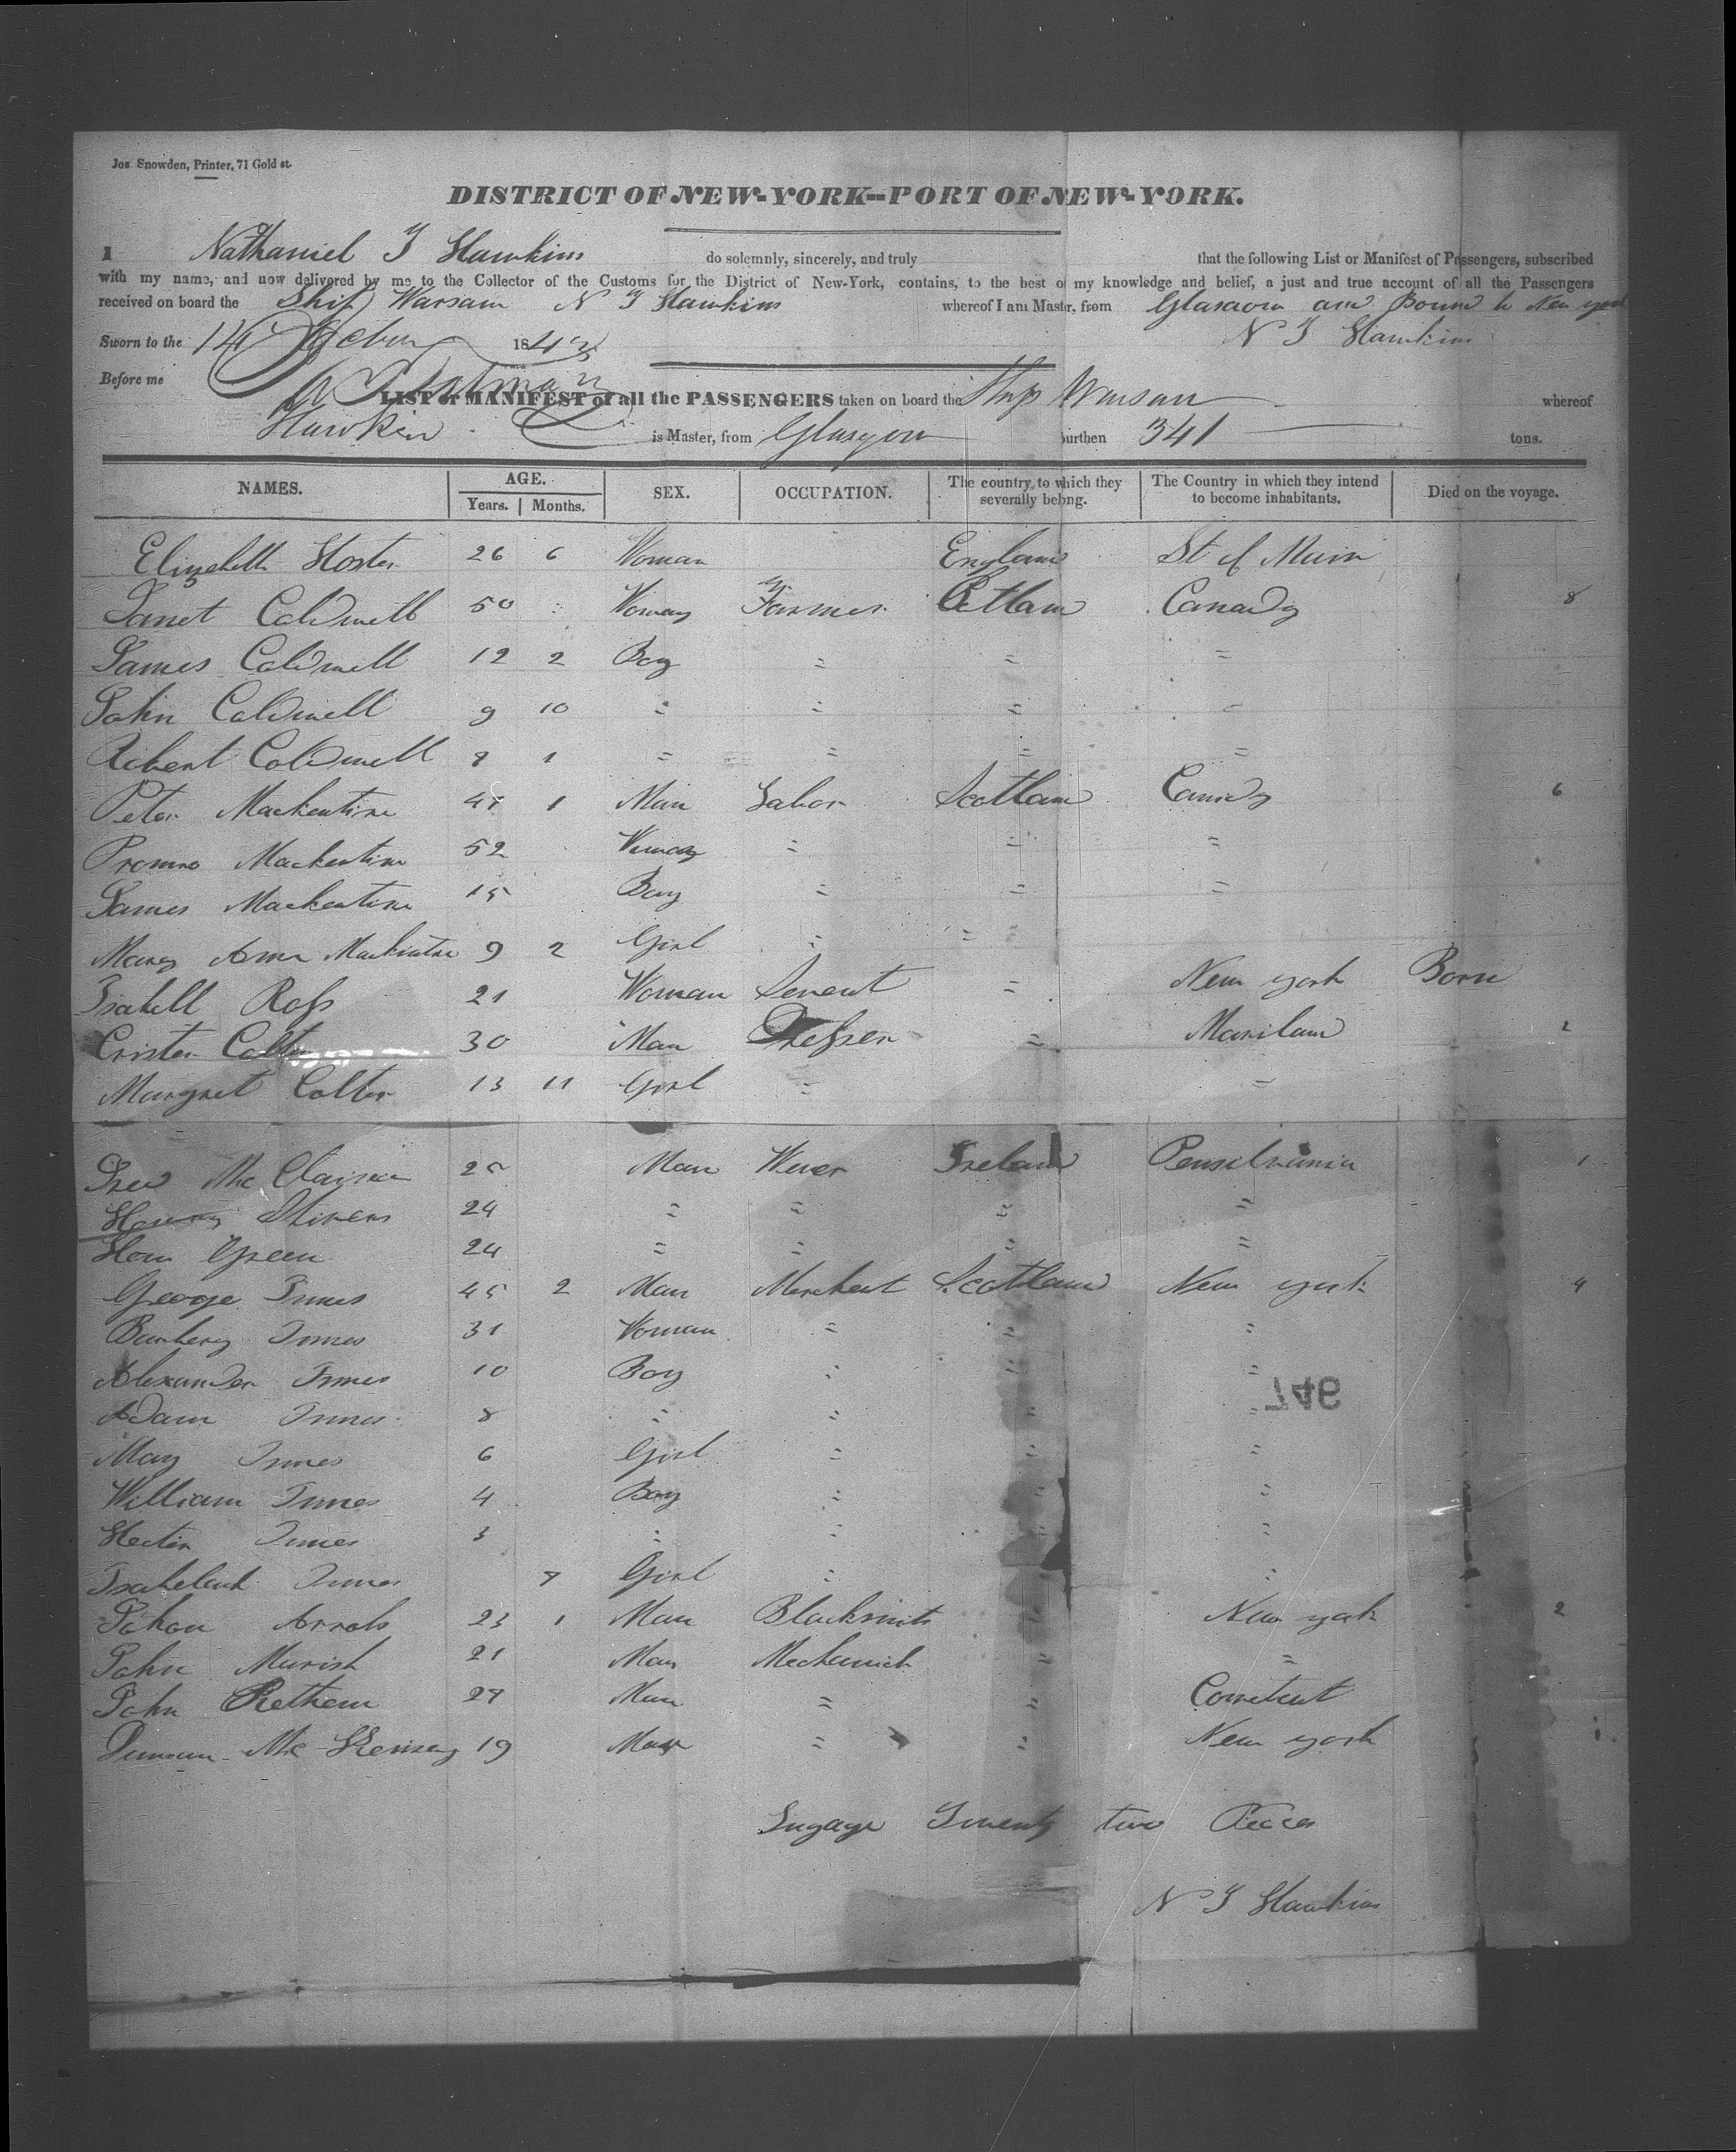 Jos. Snowden, Printer, 71 Gold st.
DISTRICT OF NEW-YORK--PORT OF NEW-YORK.
I Nathaniel T Hawkins do solemnly, sincerely, and truly that the following List or Manifest of Passengers, subscribed
with my name, and now delivered by me to the Collector of the Customs for the District of New-York, contains, to the best of my knowledge and belief, a just and true account of all the Passengers
received on board the Ship Warsaw N T Hawkins whereof I am Master, from Glasgow and Bound to New york
Sworn to the 14 184 N T Hawkins
Before me
LIST or MANIFEST of all the PASSENGERS taken on board the Ship Warsaw whereof
Hawkins is Master, from Glasgow burthen 341 tons.
NAMES. AGE. Years. Months. SEX. OCCUPATION. The country to which they severally belong. The Country in which they intend to become inhabitants. Died on the voyage.
Elizebeth Hoster 26 6 Woman England St of Main
Janet Caldwell 50 Woman Farmer Canady 8
James Caldwell 12 2 Boy = = =
John Caldwell 9 10 = = = =
Robert Caldwell 8 1 = = = =
Peter Mackentire 1 Man Labor Scotland Canady 6
Mackentire 52 Woman = = =
James Mackentire 15 Boy = = =
Mary Ann Mackintire 9 2 Girl = =
Isabell Ross 21 Woman Servent = New york Born
Colter 30 Man = Mariland 2
Margret Colter 13 11 Girl = =
Man Wever Ireland Pensilvania 1
Stivens 24 = = = =
Green 24 = = = =
George Innes 45 2 Man Merchent Scotland New york 4
Innes 31 Woman = = =
Alexander Innes 10 Boy = = =
Adam Innes 8 = = = =
746
Mary Innes 6 Girl = = =
William Innes 4 Boy = = =
Innes 3 = = = =
Innes Girl = =
Arrols 23 1 Man Blacksmith = New york 2
John Murish 21 Man Mechanick = =
John Man = =
Duncan 19 Man = = New york
Lugage Twenty two Peces
N T Hawkins